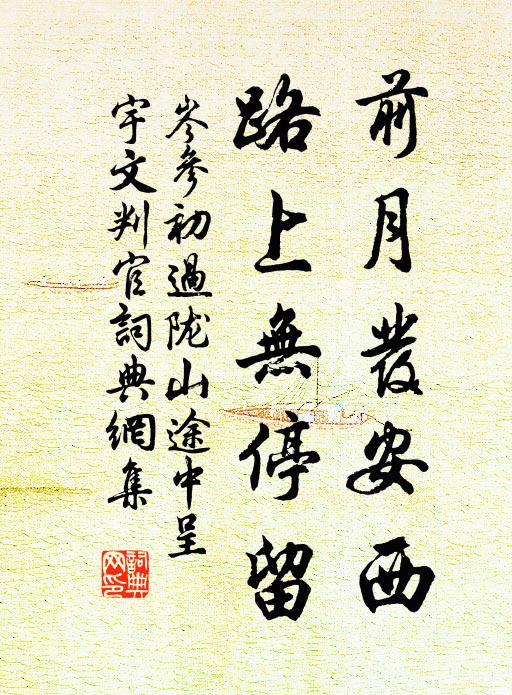 前月發安西
路上無停留
岑參初過陇山途中呈
宇文判官詞典網集
詞典
网印